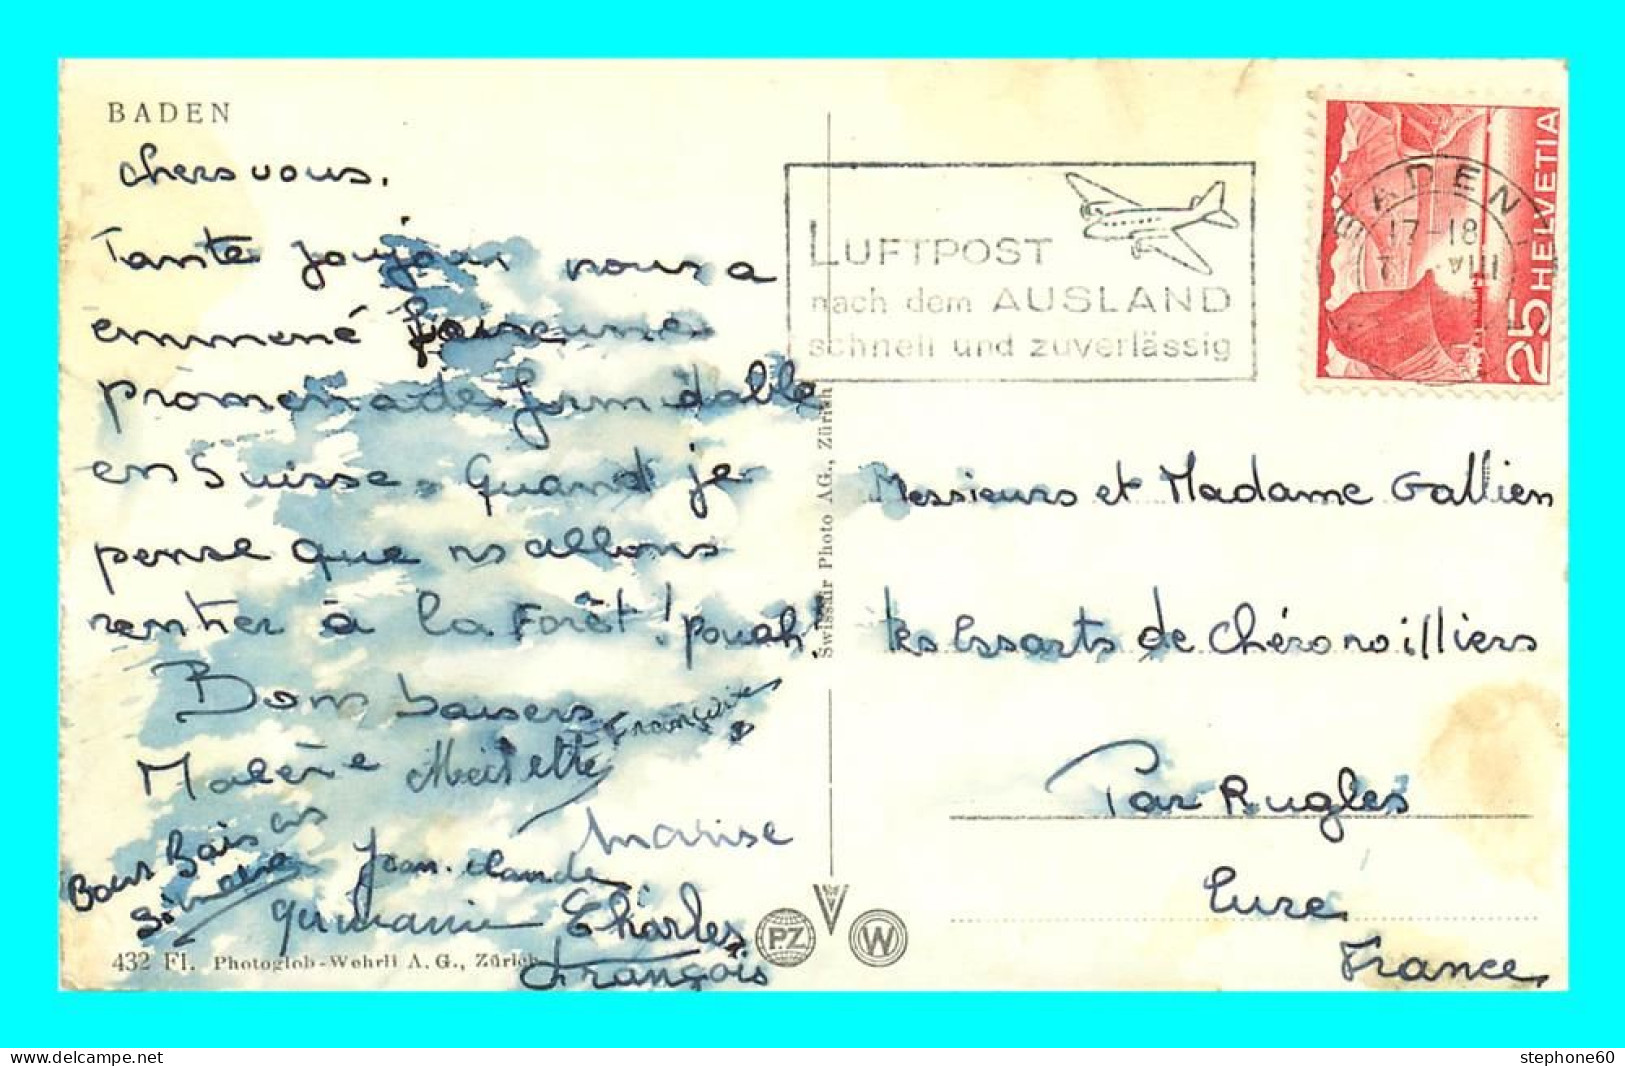 BADEN
chers vous.
Tante joujou nous a
emmené faire une
promenade formidable
en Suisse. Quand je
pense que ns allons
rentrer à la Forêt! pouah!
Bons baisers
Françoise
Malène Meisette
Bons Baisers
Marise
Simone Jean. claude
germaine Charles
François
432 Fl. Photoglob-Wehrli A. G., Zürich
Swissair Photo AG., Zürich
PZ
W
LUFTPOST
nach dem AUSLAND
schnell und zuverlässig
BADEN
17-18
7. VIII
25 HELVETIA
Messieurs et Madame Gallien
Les Essarts de Chéronvilliers
Par Rugles
Eure
France
stephone60